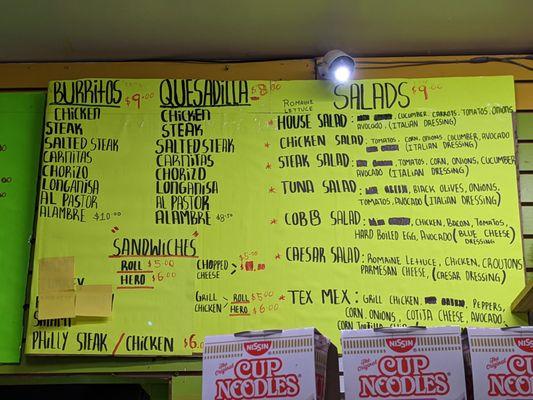 BURRITOS $9.00
CHICKEN
STEAK
SALTED STEAK
CARNITAS
CHORIZO
LONGANISA
AL PASTOR
ALAMBRE $10.00
QUESADILLA $8
CHICKEN
STEAK
SALTED STEAK
CARNITAS
CHORIZO
LONGANISA
AL PASTOR
ALAMBRE $8.50
SANDWICHES
ROLL $5.00
HERO $6.00
CHOPPED CHEESE
GRILL CHICKEN
ROLL $5.00
HERO $6.00
PHILLY STEAK / CHICKEN $6.
ROMAINE LETTUCE
SALADS $9.00
* HOUSE SALAD: CUCUMBER, CARROTS, TOMATOS, ONIONS,
AVOCADO, (ITALIAN DRESSING)
* CHICKEN SALAD: TOMATOS, CORN, ONIONS, CUCUMBER, AVOCADO
(ITALIAN DRESSING)
* STEAK SALAD: TOMATOS, CORN, ONIONS, CUCUMBER
AVOCADO (ITALIAN DRESSING)
* TUNA SALAD: BLACK OLIVES, ONIONS,
TOMATOS, AVOCADO, (ITALIAN DRESSING)
* COBB SALAD: CHICKEN, BACON, TOMATOS,
HARD BOILED EGG, AVOCADO (BLUE CHEESE DRESSING)
* CAESAR SALAD: ROMAINE LETTUCE, CHICKEN, CROUTONS
PARMESAN CHEESE, (CAESAR DRESSING)
* TEX MEX: GRILL CHICKEN, PEPPERS,
CORN, ONIONS, COTIJA CHEESE, AVOCADO,
CORN TORTILLA
NISSIN
The Original
CUP NOODLES
NISSIN
The Original
CUP NOODLES
NISSIN
The Original
CUP NOODLES